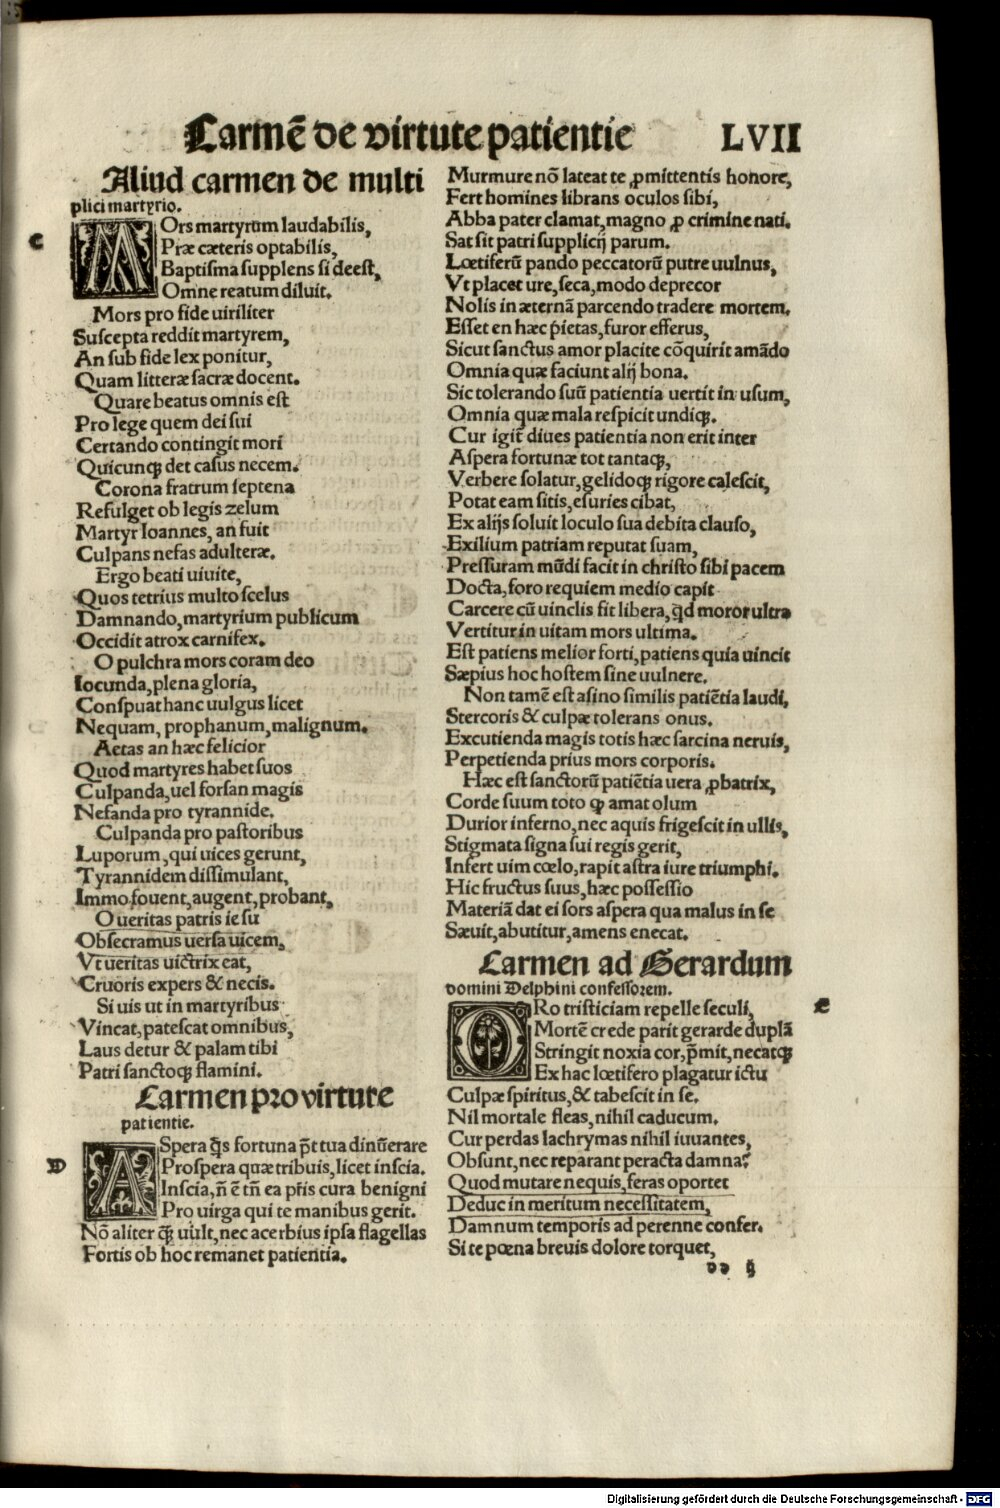 Carmē de virtute patientie LVII
Aliud carmen de multi
plici martyrio.
C
MOrs martyrum laudabilis,
Præ cæteris optabilis,
Baptisma supplens si deest,
Omne reatum diluit.
Mors pro fide uiriliter
Suscepta reddit martyrem,
An sub fide lex ponitur,
Quam litteræ sacræ docent.
Quare beatus omnis est
Pro lege quem dei sui
Certando contingit mori
Quicunqꝫ det casus necem.
Corona fratrum septena
Refulget ob legis zelum
Martyr Ioannes, an fuit
Culpans nefas adulteræ.
Ergo beati uiuite,
Quos tetrius multo scelus
Damnando, martyrium publicum
Occidit atrox carnifex.
O pulchra mors coram deo
Iocunda, plena gloria,
Conspuat hanc uulgus licet
Nequam, prophanum, malignum.
Aetas an hæc felicior
Quod martyres habet suos
Culpanda, uel forsan magis
Nefanda pro tyrannide.
Culpanda pro pastoribus
Luporum, qui uices gerunt,
Tyrannidem dissimulant,
Immo fouent, augent, probant,
O ueritas patris iesu
Obsecramus uersa uicem,
Vt ueritas uictrix eat,
Cruoris expers & necis.
Si uis ut in martyribus
Vincat, patescat omnibus,
Laus detur & palam tibi
Patri sanctoqꝫ flamini.
Carmen pro virtute
patientie.
D
ASpera q̄s fortuna p̄t tua dinūerare
Prospera quæ tribuis, licet inscia.
Inscia, n̄ ē tn̄ ea pr̄is cura benigni
Pro uirga qui te manibus gerit.
Nō aliter q̄ꝫ uult, nec acerbius ipsa flagellas
Fortis ob hoc remanet patientia.
Murmure nō lateat te ꝓmittentis honore,
Fert homines librans oculos sibi,
Abba pater clamat, magno ꝓ crimine nati.
Sat sit patri supplicij parum.
Lœtiferū pando peccatorū putre uulnus,
Vt placet ure, seca, modo deprecor
Nolis in æternā parcendo tradere mortem.
Esset en hæc p̄ietas, furor efferus,
Sicut sanctus amor placite cōquirit amādo
Omnia quæ faciunt alij bona.
Sic tolerando suū patientia uertit in usum,
Omnia quæ mala respicit undiqꝫ.
Cur igit̄ diues patientia non erit inter
Aspera fortunæ tot tantaqꝫ,
Verbere solatur, gelidoqꝫ rigore calescit,
Potat eam sitis, esuries cibat,
Ex alijs soluit loculo sua debita clauso,
Exilium patriam reputat suam,
Pressuram mūdi facit in christo sibi pacem
Docta, foro requiem medio capit
Carcere cū uinclis fit libera, q̄d moror ultra
Vertitur in uitam mors ultima.
Est patiens melior forti, patiens quia uincit
Sæpius hoc hostem sine uulnere.
Non tamē est asino similis patiētia laudi,
Stercoris & culpæ tolerans onus.
Excutienda magis totis hæc sarcina neruis,
Perpetienda prius mors corporis.
Hæc est sanctorū patiētia uera ꝓbatrix,
Corde suum toto qꝫ amat olum
Durior inferno, nec aquis frigescit in ullis,
Stigmata signa sui regis gerit,
Infert uim cœlo, rapit astra iure triumphi.
Hic fructus suus, hæc possessio
Materiā dat ei sors aspera qua malus in se
Sæuit, abutitur, amens enecat.
Carmen ad Gerardum
domini Delphini confessorem.
E
ORo tristiciam repelle seculi,
Mortē crede parit gerarde duplā
Stringit noxia cor, p̄mit, necatqꝫ
Ex hac lœtifero plagatur ictu
Culpæ spiritus, & tabescit in se.
Nil mortale fleas, nihil caducum.
Cur perdas lachrymas nihil iuuantes,
Obsunt, nec reparant peracta damna?
Quod mutare nequis, feras oportet
Deduc in meritum necessitatem,
Damnum temporis ad perenne confer.
Si te pœna breuis dolore torquet,
dd ij
Digitalisierung gefördert durch die Deutsche Forschungsgemeinschaft - DFG